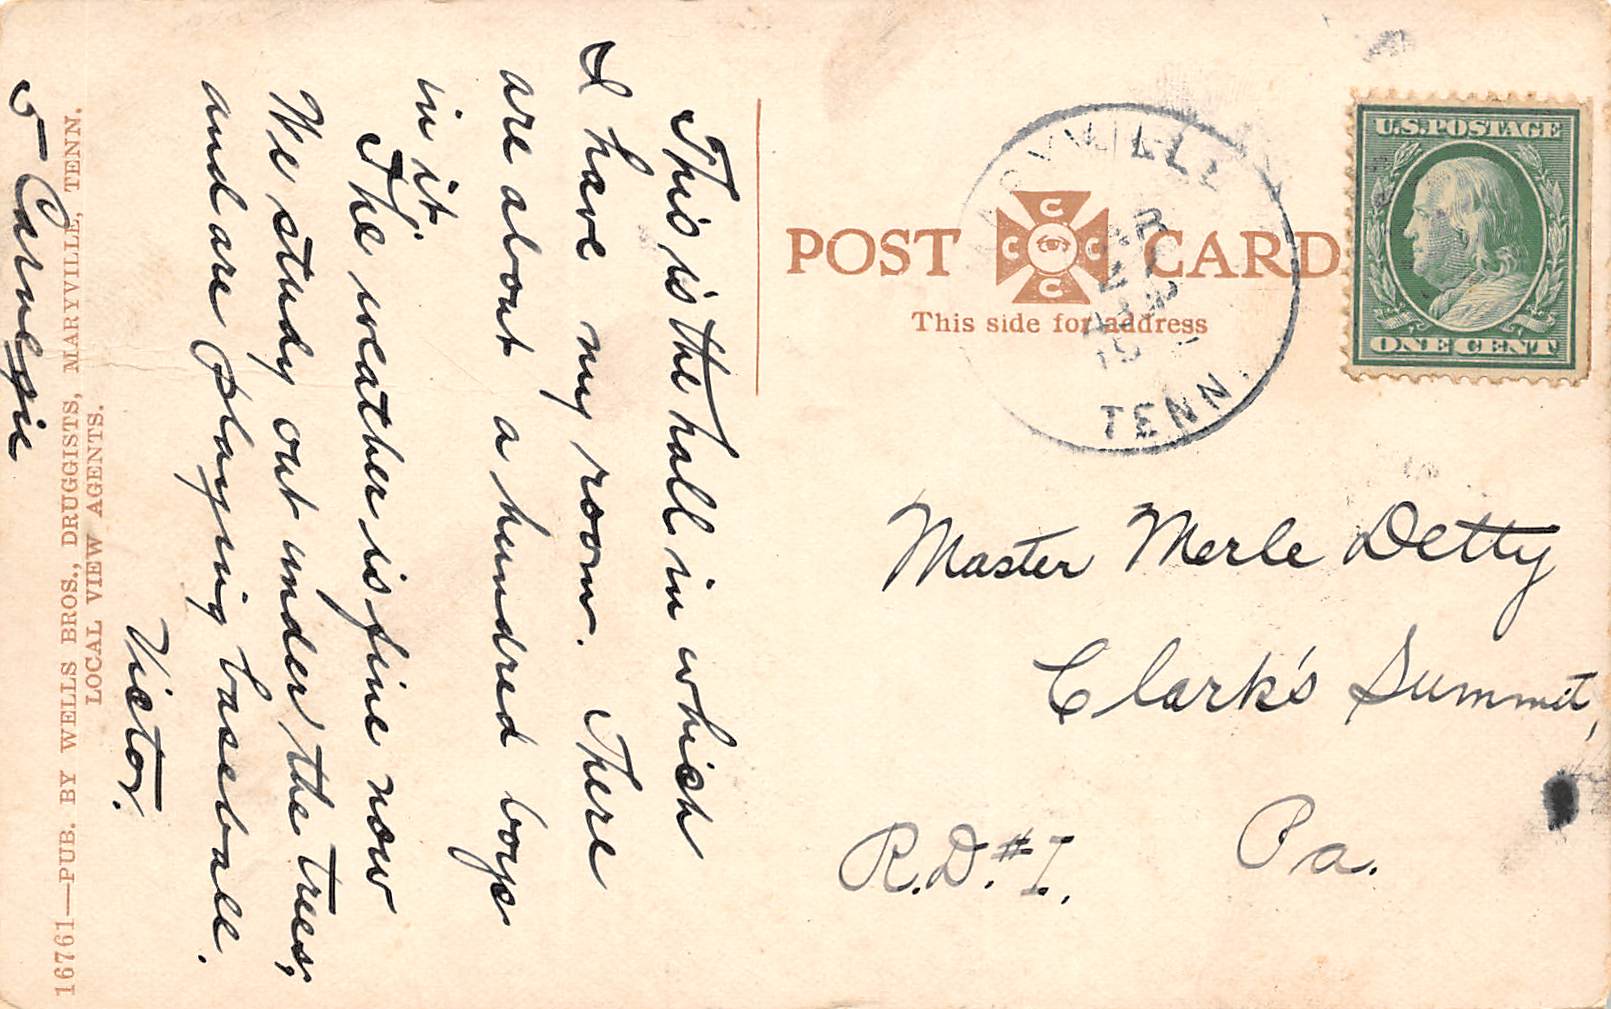 This is the hall in which
I have my room. There
are about a hundred boys
in it.
The weather is fine now
We study out under the trees,
and are playing baseball.
Victor.
Carnegie
16761—PUB. BY WELLS BROS., DRUGGISTS, MARYVILLE, TENN.
LOCAL VIEW AGENTS.
POST CARD
C C C C
This side for address
TENN.
U.S. POSTAGE
ONE CENT
Master Merle Detty
Clark's Summit,
Pa.
R.D. #1.